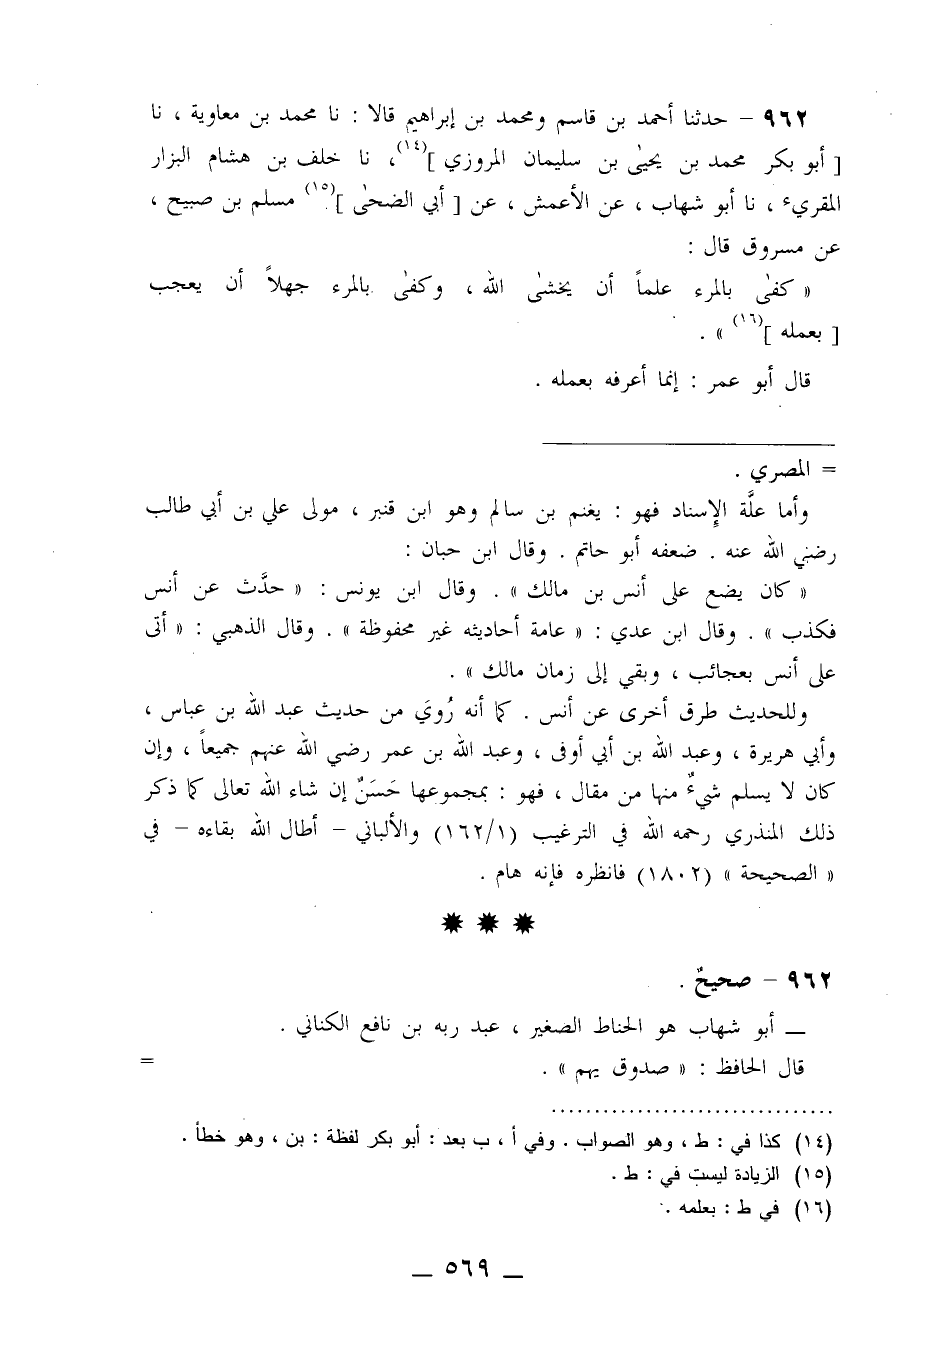 ٩٦٢ – حدثنا أحمد بن قاسم ومحمد بن إبراهيم قالا : نا محمد بن معاوية ، نا
[ أبو بكر محمد بن يحيىٰ بن سليمان المروزي ](١٤)، نا خلف بن هشام البزار
المقريء ، نا أبو شهاب ، عن الأعمش ، عن [ أبي الضحىٰ ](١٥) مسلم بن صبيح ،
عن مسروق قال :
« كفىٰ بالمرء علماً أن يخشىٰ الله ، وكفىٰ بالمرء جهلاً أن يعجب
[ بعمله ](١٦) » .
قال أبو عمر : إنما أعرفه بعمله .
= المصري .
وأما علَّة الإسناد فهو : يغنم بن سالم وهو ابن قنبر ، مولى علي بن أبي طالب
رضي الله عنه . ضعفه أبو حاتم . وقال ابن حبان :
« كان يضع على أنس بن مالك » . وقال ابن يونس : « حدَّث عن أنس
فكذب » . وقال ابن عدي : « عامة أحاديثه غير محفوظة » . وقال الذهبي : « أتى
على أنس بعجائب ، وبقي إلى زمان مالك » .
وللحديث طرق أخرى عن أنس . كما أنه رُويَ من حديث عبد الله بن عباس ،
وأبي هريرة ، وعبد الله بن أبي أوفى ، وعبد الله بن عمر رضي الله عنهم جميعاً ، وإن
كان لا يسلم شيءٌ منها من مقال ، فهو : بمجموعها حَسَنٌ إن شاء الله تعالى كما ذكر
ذلك المنذري رحمه الله في الترغيب (١٦٢/١) والألباني – أطال الله بقاءه – في
« الصحيحة » (١٨٠٢) فانظره فإنه هام .
✸ ✸ ✸
٩٦٢ – صحيحٌ .
— أبو شهاب هو الحناط الصغير ، عبد ربه بن نافع الكناني .
قال الحافظ : « صدوق يهم » . =
(١٤) كذا في : ط ، وهو الصواب . وفي أ ، ب بعد : أبو بكر لفظة : بن ، وهو خطأ .
(١٥) الزيادة ليست في : ط .
(١٦) في ط : بعلمه .
— ٥٦٩ —